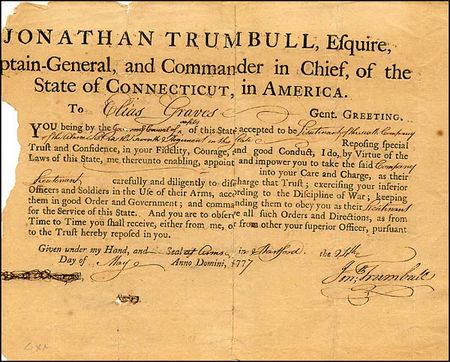 JONATHAN TRUMBULL, Esquire,
ptain-General, and Commander in Chief, of the
State of CONNECTICUT, in AMERICA.
To Elias Graves Gent. GREETING.
YOU being by the Gen. Assembly of this State accepted to be Lieutenant of the Company
Regiment in the State Reposing special
Trust and Confidence, in your Fidelity, Courage, and good Conduct, I do, by Virtue of the
Laws of this State, me thereunto enabling, appoint and impower you to take the said Company
into your Care and Charge, as their
Lieutenant, carefully and diligently to discharge that Trust; exercising your inferior
Officers and Soldiers in the Use of their Arms, according to the Discipline of War; keeping
them in good Order and Government; and commanding them to obey you as their Lieutenant
for the Service of this State. And you are to observe all such Orders and Directions, as from
Time to Time you shall receive, either from me, or from other your superior Officer, pursuant
to the Trust hereby reposed in you.
Given under my Hand, and Seal at Arms, in Hartford the
Day of May Anno Domini, 1777
Jonth Trumbull